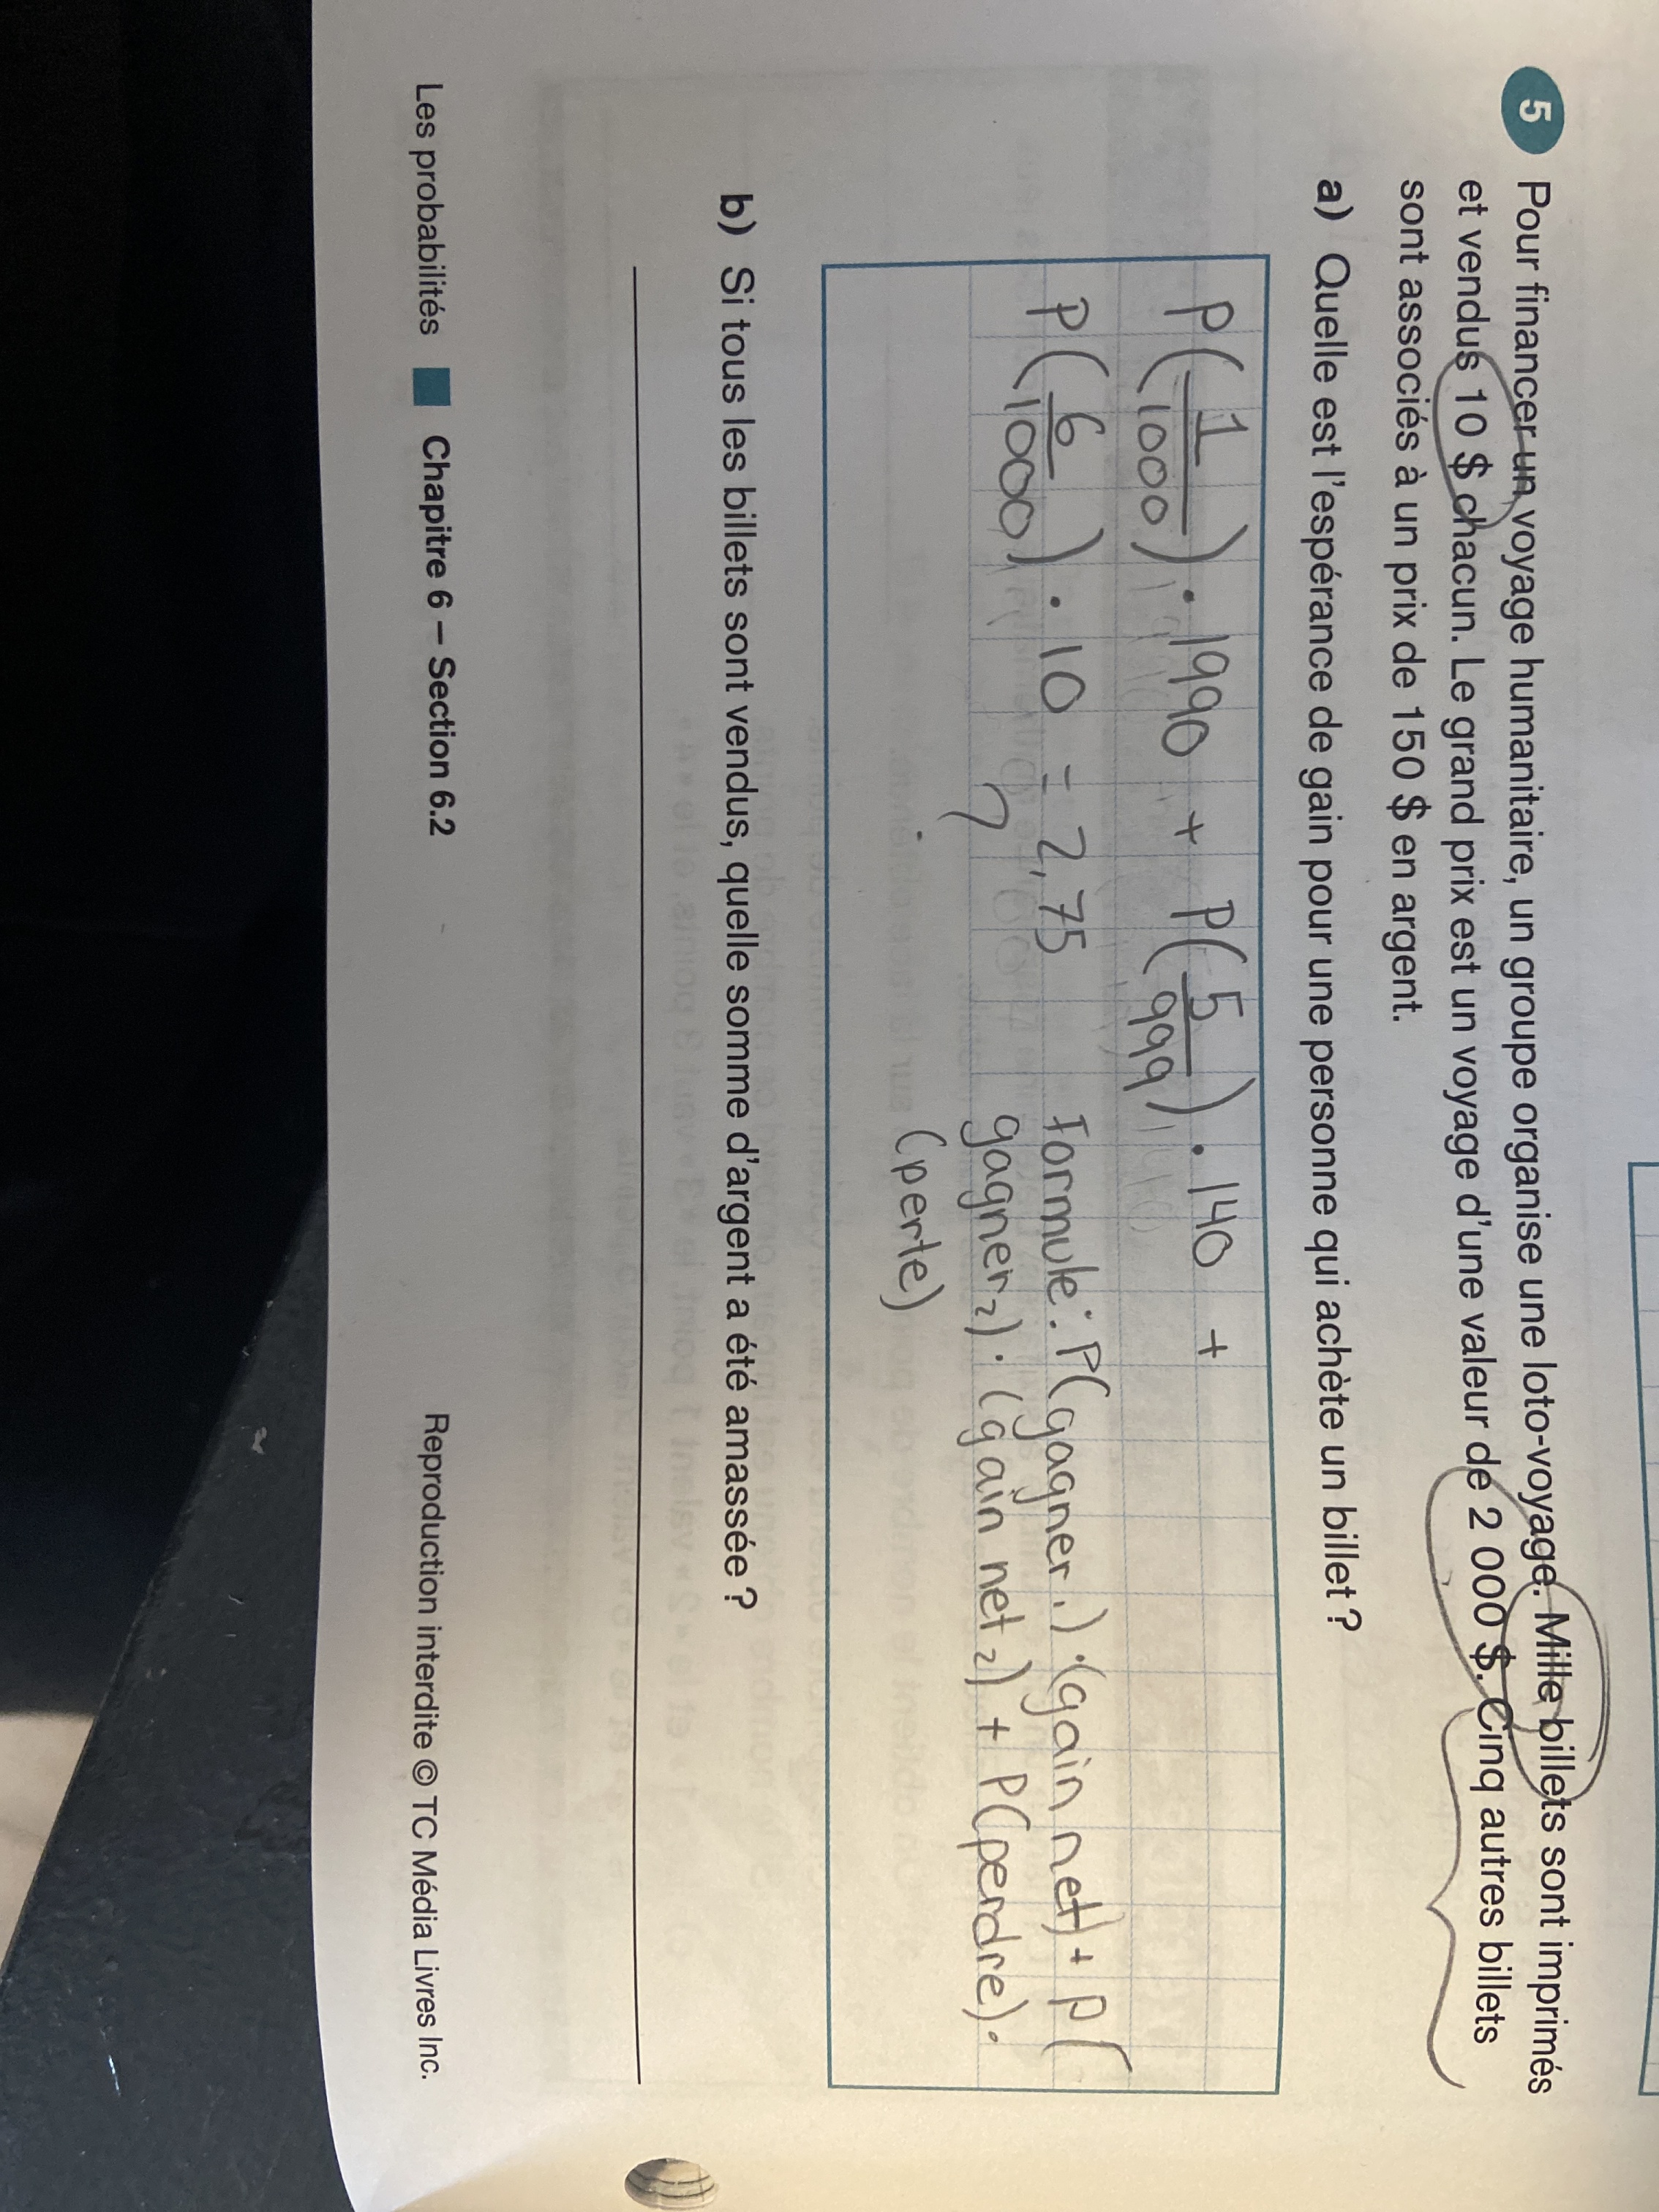 5 Pour financer un voyage humanitaire, un groupe organise une loto-voyage. Mille billets sont imprimés
et vendus 10 $ chacun. Le grand prix est un voyage d'une valeur de 2 000 $. Cinq autres billets
sont associés à un prix de 150 $ en argent.
a) Quelle est l'espérance de gain pour une personne qui achète un billet ?
P(1/1000) · 1990 + P(5/999) · 140 +
P(6/1000) · 10 = 2,75
formule: P(gagner1) · (gain net) + P(
gagner2) · (gain net2) + P(perdre) ·
(perte)
b) Si tous les billets sont vendus, quelle somme d'argent a été amassée ?
Les probabilités ■ Chapitre 6 – Section 6.2
Reproduction interdite © TC Média Livres Inc.